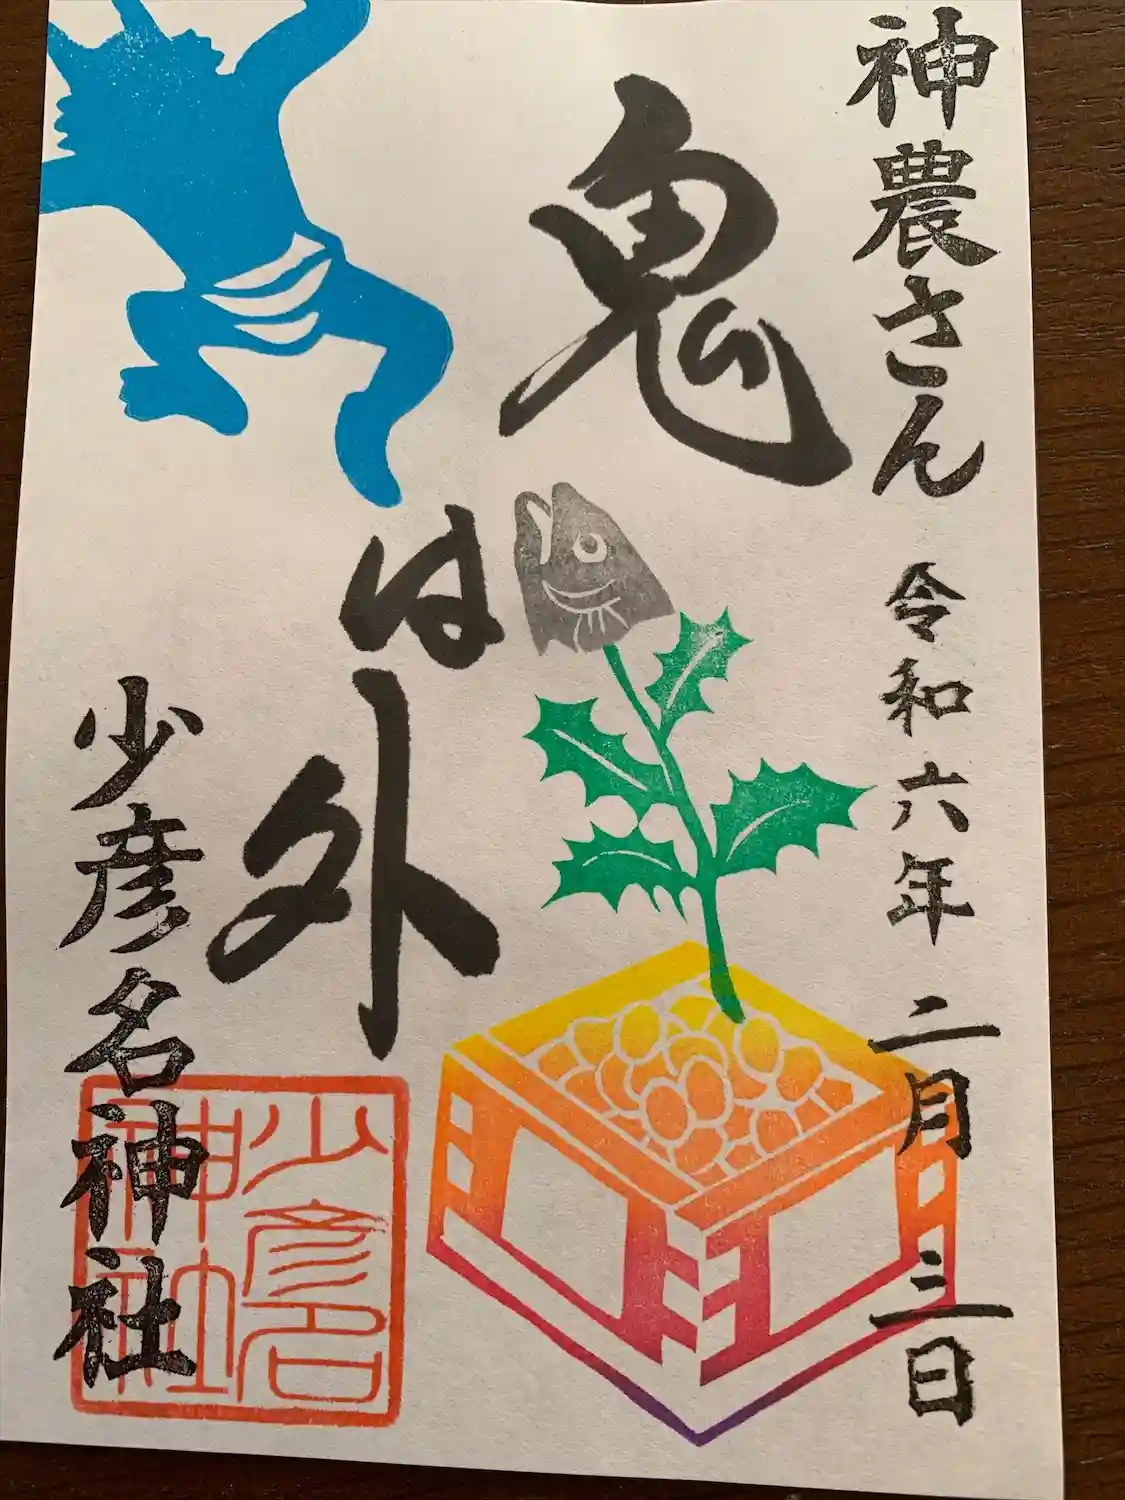 神農さん 令和六年 二月三日
鬼
は外
少彦名神社
少彦名
神社